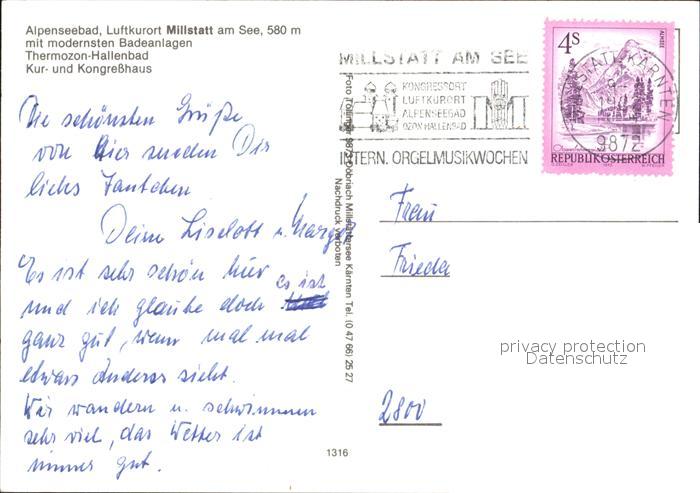 Alpenseebad, Luftkurort Millstatt am See, 580 m
mit modernsten Badeanlagen
Thermozon-Hallenbad
Kur- und Kongreßhaus
Die schönsten Grüße
von hier senden Dir
liebs Tantchen
Deine Liselott u. Margot
Es ist sehr schön hier es ist
und ich glaube doch
ganz gut, wenn mal mal
etwas Anderes sieht.
Wir wandern u. schwimmen
sehr viel, das Wetter ist
immer gut.
MILLSTATT AM SEE
KONGRESSORT
LUFTKURORT
ALPENSEEBAD
OZON HALLENBAD
INTERN. ORGELMUSIKWOCHEN
4S
ALMSEE
REPUBLIK ÖSTERREICH
MILLSTATT, KÄRNTEN
9872
Foto 9872 Döbriach Millstättersee Kärnten Tel. (0 47 66) 25 27
Nachdruck verboten
Frau
Frieda
2800
privacy protection
Datenschutz
1316